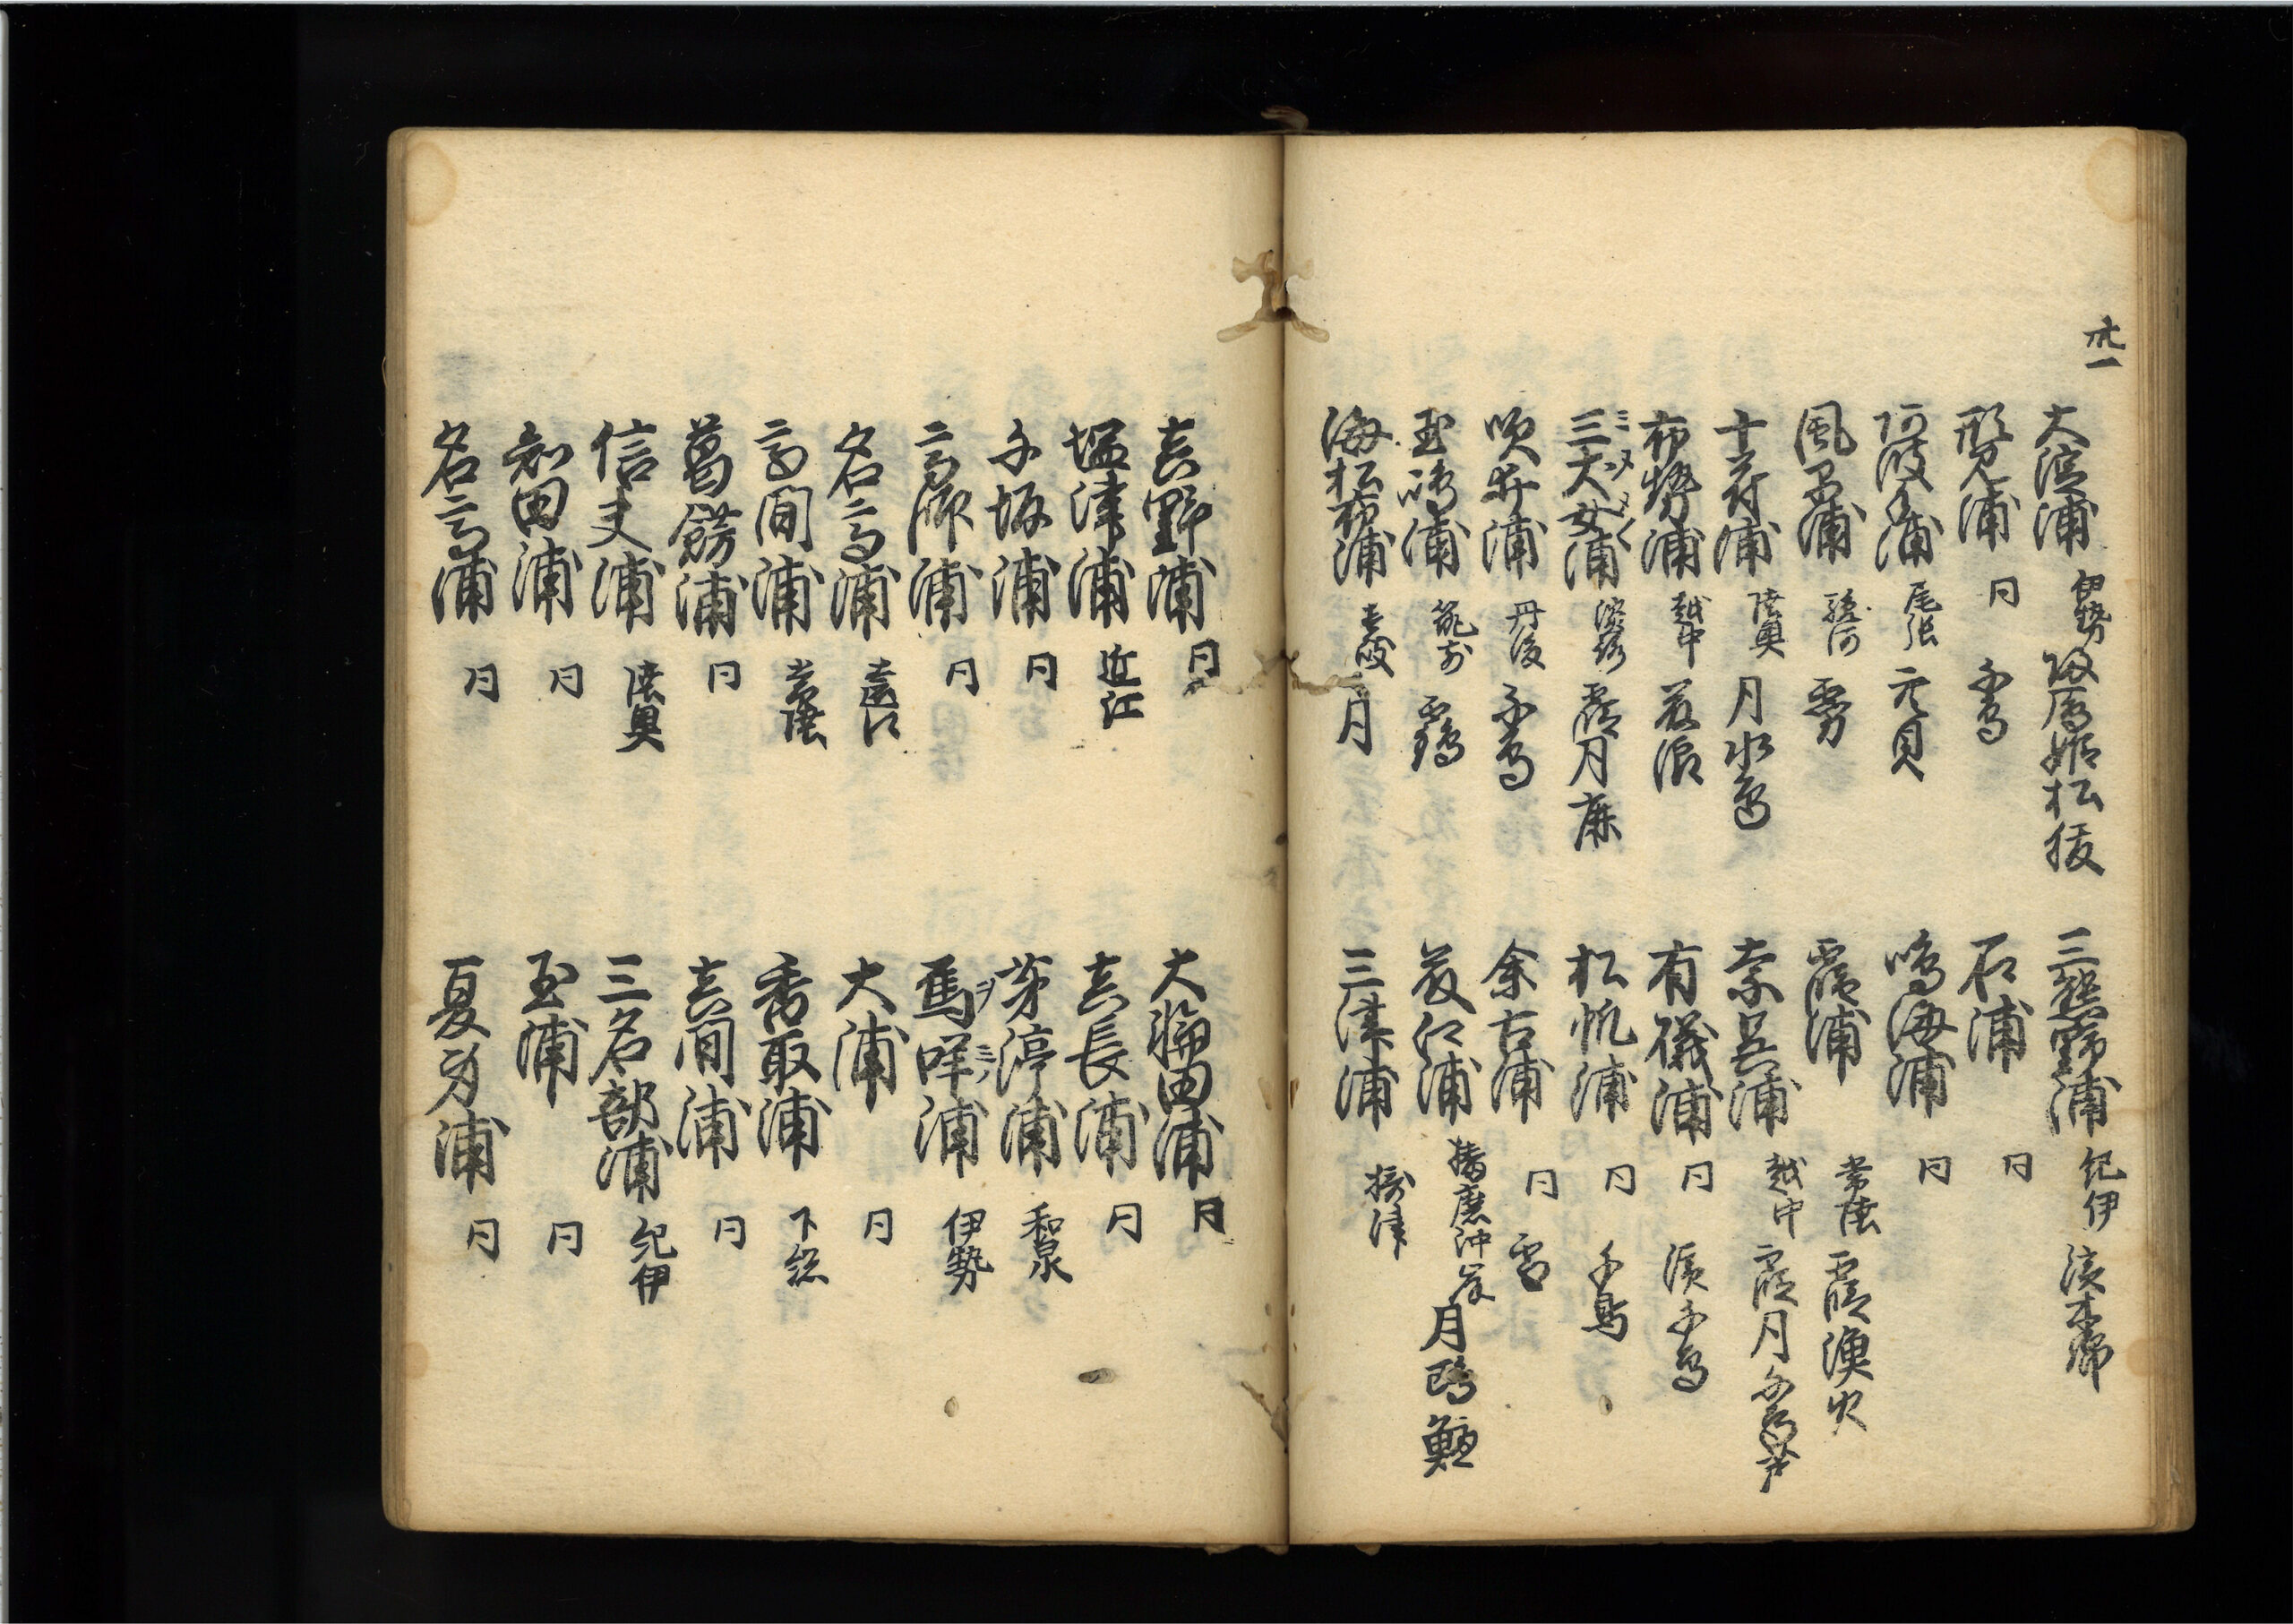 大淀浦 伊勢 帰雁 姫松 援
三熊野浦 紀伊 浜木綿
形見浦 同 千鳥
石浦 同
阿波手浦 尾張 亡貝
鳴海浦 同
風早浦 駿河 霧
霞浦 常陸 霞 漁火
十府浦 陸奥 月 水鳥
奈呉浦 越中 霞 月 千鳥 芦
布勢浦 越中 花 浪
有礒浦 同 浜千鳥
三犬女浦 淡路 霞 月 鹿
ミヌメ
松帆浦 同 千鳥
吹井浦 丹後 千鳥
余古浦 同 雪
玉嶋浦 筑前 霞
藤江浦 播磨 月 鴎
海松布浦 壱岐 月
三津浦 摂津
吉野浦 同
大輪田浦 同
塩津浦 近江
吉長浦 同
千坂浦 同
茅渟浦 和泉
高師浦 同
嗚咩浦 伊勢
ヲミ
名高浦 遠江
大浦 同
高間浦 常陸
香取浦 下総
葛餝浦 同
吉間浦 同
信夫浦 陸奥
三名部浦 紀伊
知田浦 同
玉浦 同
名高浦 同
夏身浦 同